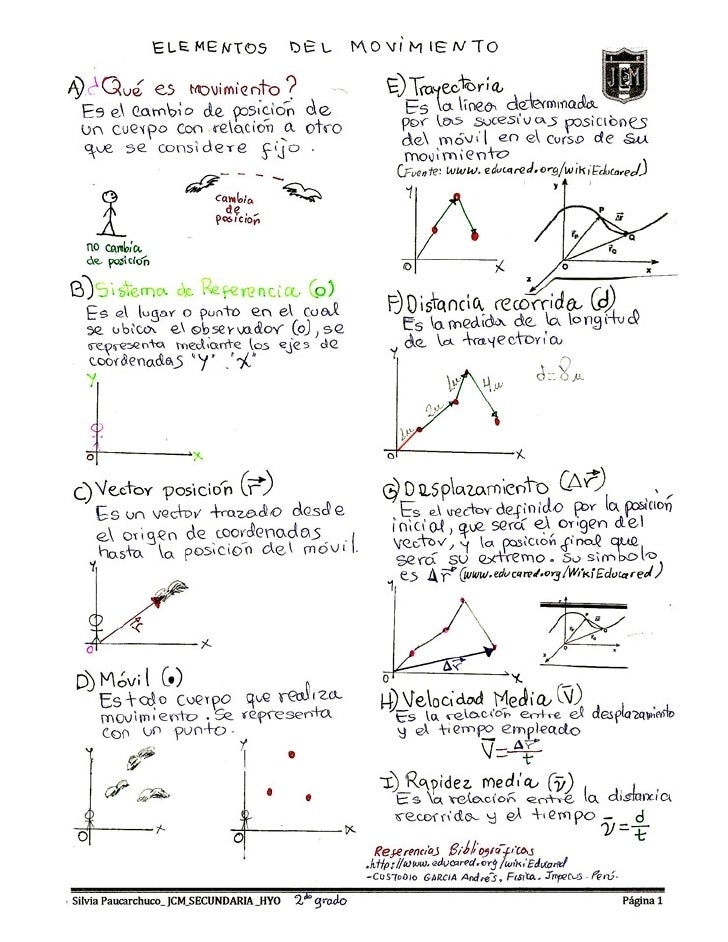 ELEMENTOS DEL MOVIMIENTO
JCM
A) ¿Qué es movimiento?
Es el cambio de posición de
un cuerpo con relación a otro
que se considere fijo.
cambia
de
posición
no cambia
de posición
B) Sistema de Referencia (o)
Es el lugar o punto en el cual
se ubica el observador (o), se
representa mediante los ejes de
coordenadas "Y" "X"
Y
O
X
C) Vector posición (r)
Es un vector trazado desde
el origen de coordenadas
hasta la posición del móvil.
Y
r
O
X
D) Móvil (•)
Es todo cuerpo que realiza
movimiento. Se representa
con un punto.
Y
Y
O
X
O
X
E) Trayectoria
Es la linea determinada
por las sucesivas posiciones
del móvil en el curso de su
movimiento
(Fuente: www.educared.org/wikiEducared)
Y
O
X
y
P
Δr
Q
rP
rQ
O
x
z
F) Distancia recorrida (d)
Es la medida de la longitud
de la trayectoria
Y
2u
2u
4u
d=8u
O
X
G) Desplazamiento (Δr)
Es el vector definido por la posición
inicial, que será el origen del
vector, y la posición final que
será su extremo. Su simbolo
es Δr (www.educared.org/WikiEducared)
Y
Δr
O
X
H) Velocidad Media (V)
Es la relación entre el desplazamiento
y el tiempo empleado
V = Δr
t
I) Rapidez media (v)
Es la relación entre la distancia
recorrida y el tiempo
v = d
t
Referencias Bibliográficas
.http://www.educared.org/wikiEducared
-CUSTODIO GARCIA Andrés. Fisica. Impecus. Perú.
Silvia Paucarchuco_ JCM_SECUNDARIA _HYO 2do grado
Página 1